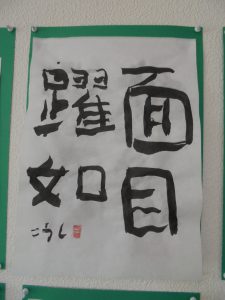 面目
躍如
こうし